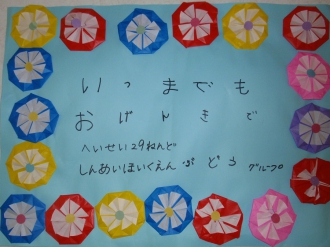 いつまでも
おげんきで
へいせい29ねんど
しんあいほいくえん ぶどうグループ